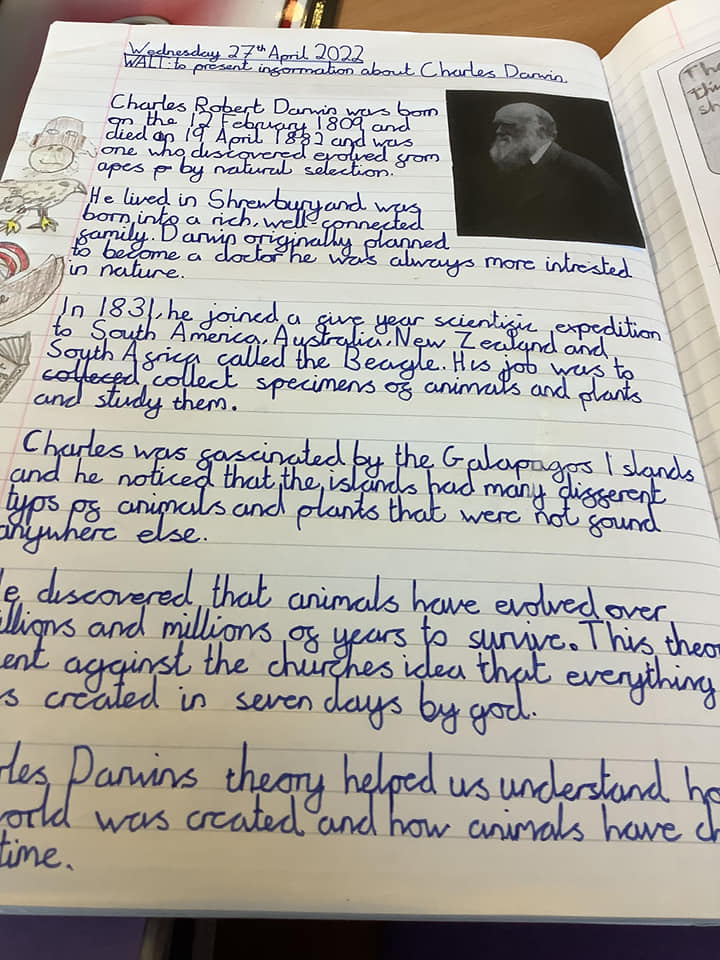 Wednesday 27th April 2022
WALT: to present information about Charles Darwin.
Charles Robert Darwin was born
on the 12 February 1809 and
died on 19 April 1882 and was
one who discovered evolved from
apes by natural selection.
He lived in Shrewbury and was
born into a rich, well-connected
family. Darwin originally planned
to become a doctor he was always more intrested
in nature.
In 1831, he joined a five year scientific expedition
to South America, Australia, New Zealand and
South Africa called the Beagle. His job was to
colleced collect specimens of animals and plants
and study them.
Charles was fascinated by the Galapagos Islands
and he noticed that the islands had many different
typs of animals and plants that were not found
anywhere else.
e discovered that animals have evolved over
illions and millions of years to survive. This theo
ent against the churches idea that everything
s created in seven days by god.
les Darwins theory helped us understand ho
orld was created and how animals have ch
time.